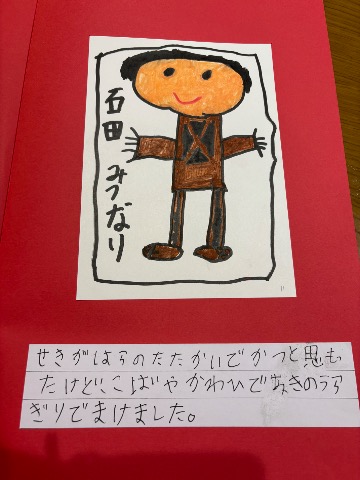 石田 みつなり
せきがはらのたたかいでかつと思も
たけどこばやかわひであきのうら
ぎりでまけました。